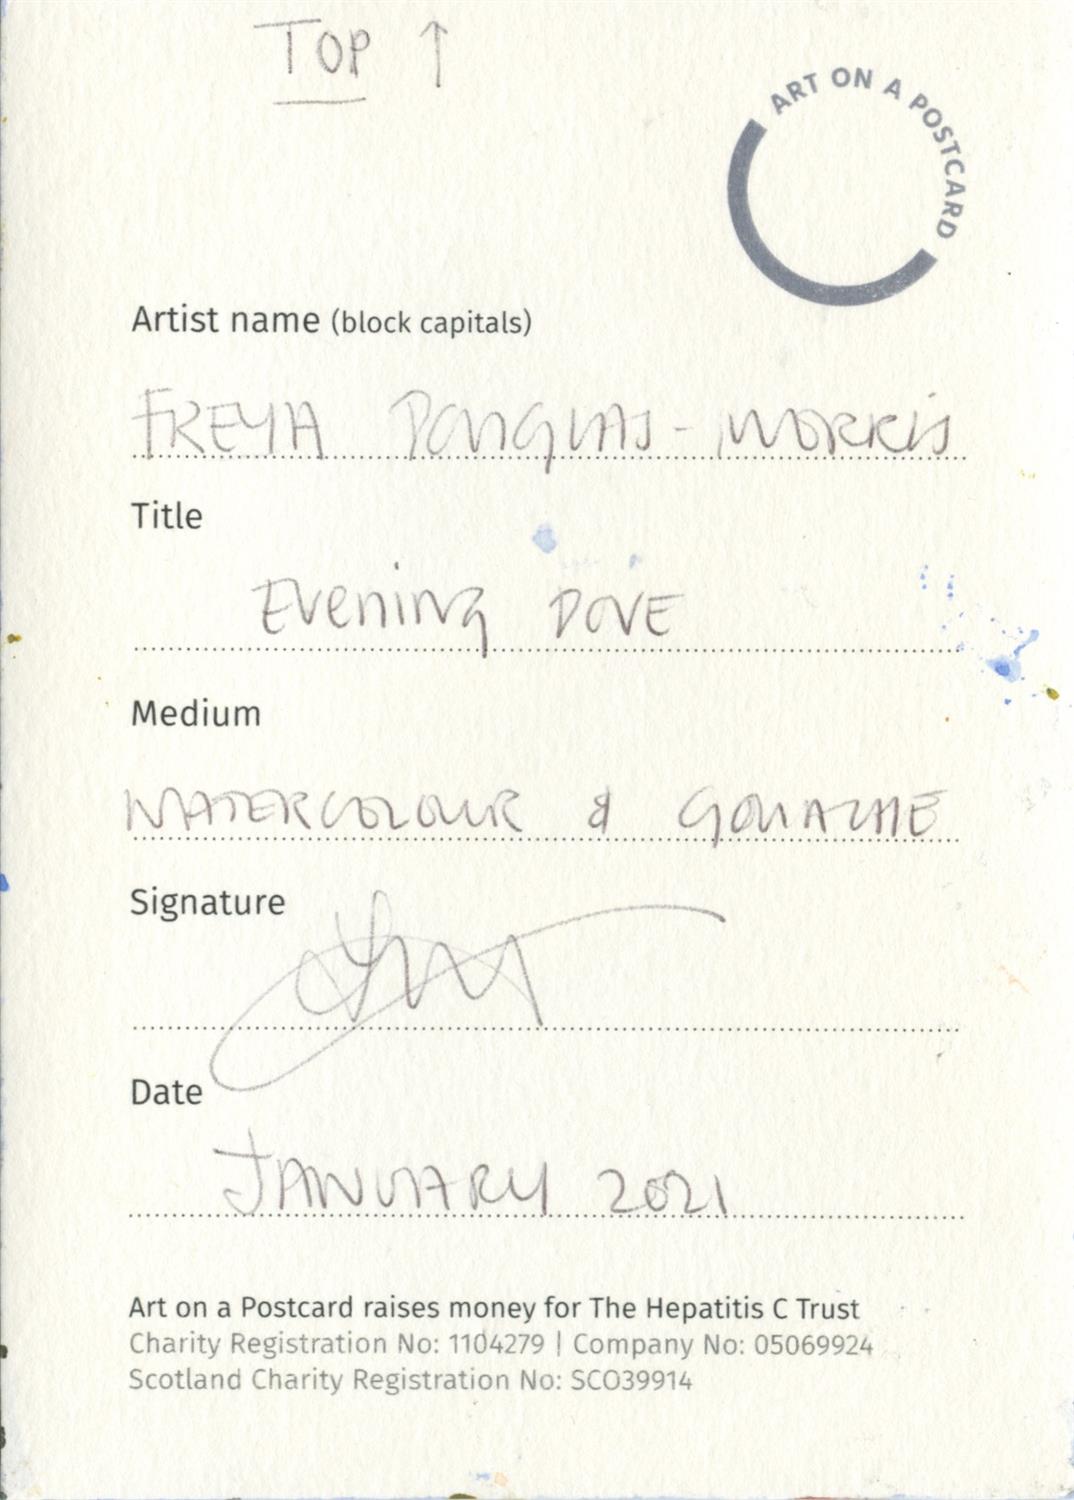 TOP ↑
ART ON A POSTCARD
Artist name (block capitals)
FREYA DOUGLAS-MORRIS
Title
Evening DOVE
Medium
WATERCOLOUR & GOUACHE
Signature
Date
JANUARY 2021
Art on a Postcard raises money for The Hepatitis C Trust
Charity Registration No: 1104279 | Company No: 05069924
Scotland Charity Registration No: SCO39914